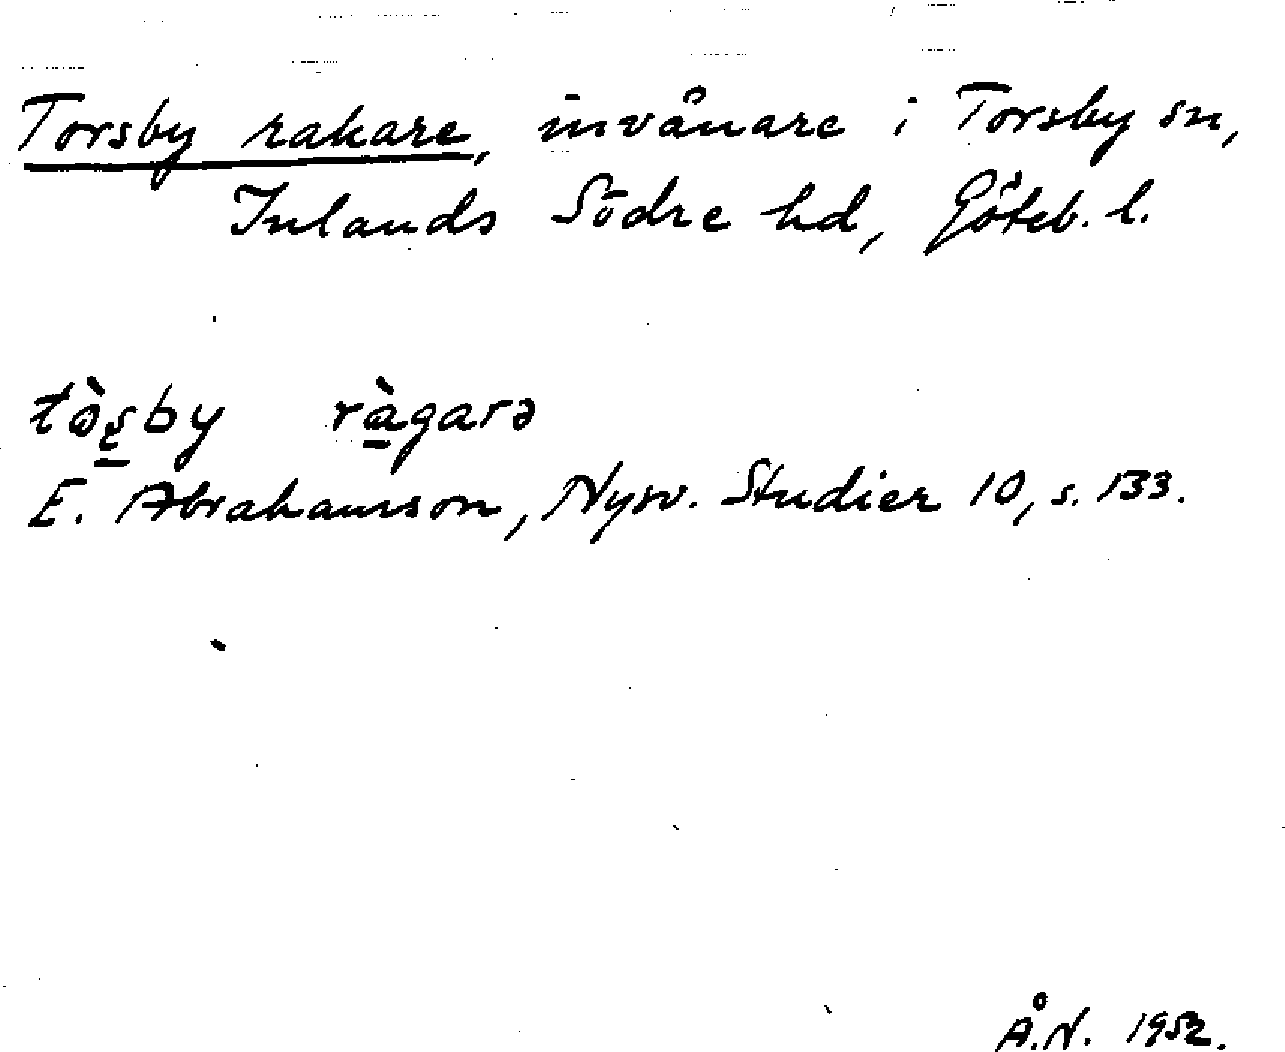 Torsby rakare, invånare i Torsby sn,
Inlands Södre hd, Göteb. l.
tòʂby ràgarə
E. Abrahamson, Nysv. Studier 10, s. 133.
Å.N. 1952.